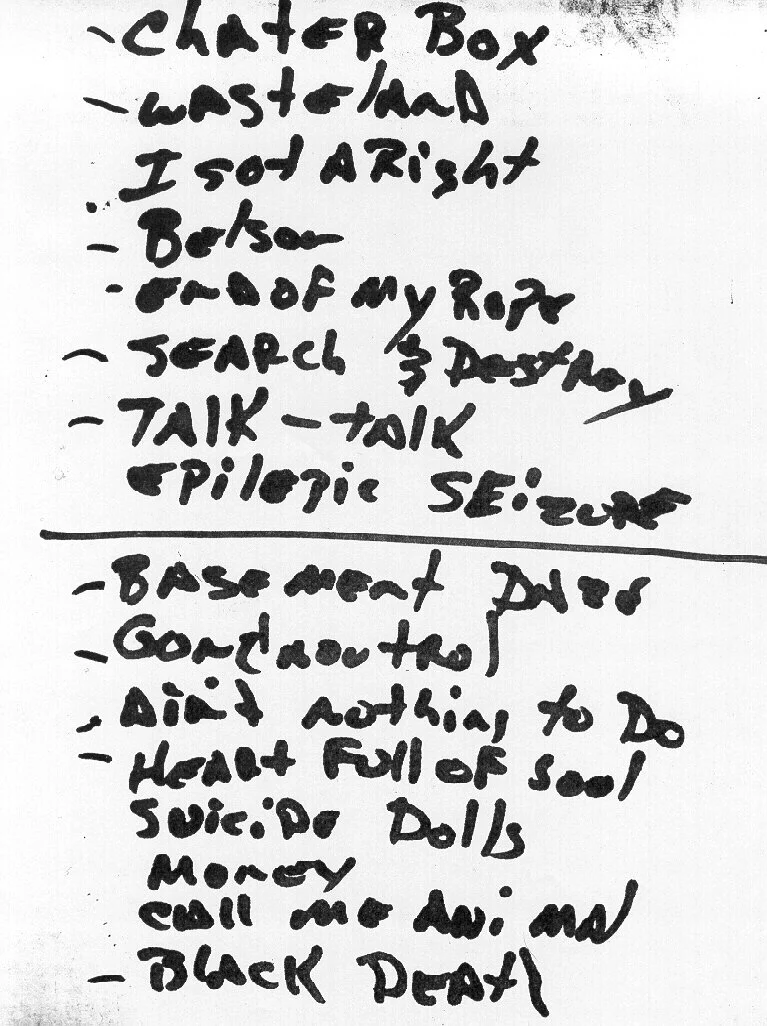 - CHATER BOX
- WASTELAND
I got A Right
- Belsen
- END OF MY ROPE
- SEARCH & DestRoy
- TALK - tALK
EPILEPIC SEIZURE
- BASEMENT DAZE
- Gone
Ain't nothing to Do
- HEARt Full oF Soul
SUiCiDe Dolls
MONEY
CAll ME ANiMAl
- BLACK DEATh